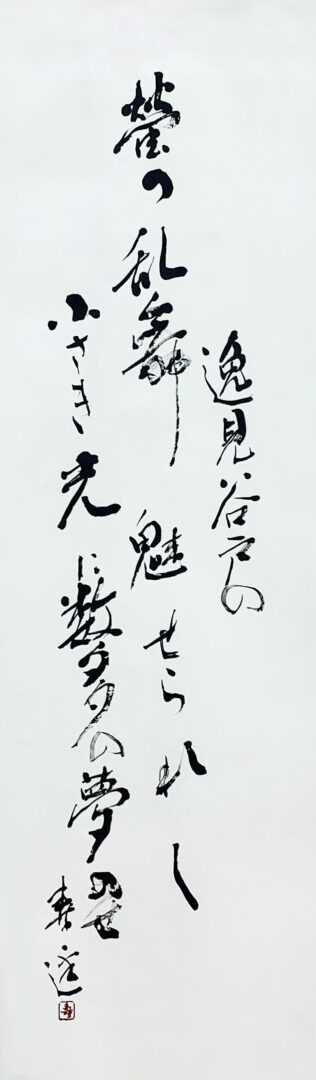 逸見谷戸の
蛍の乱舞 魅せられし
小さき光に数多の夢
寿